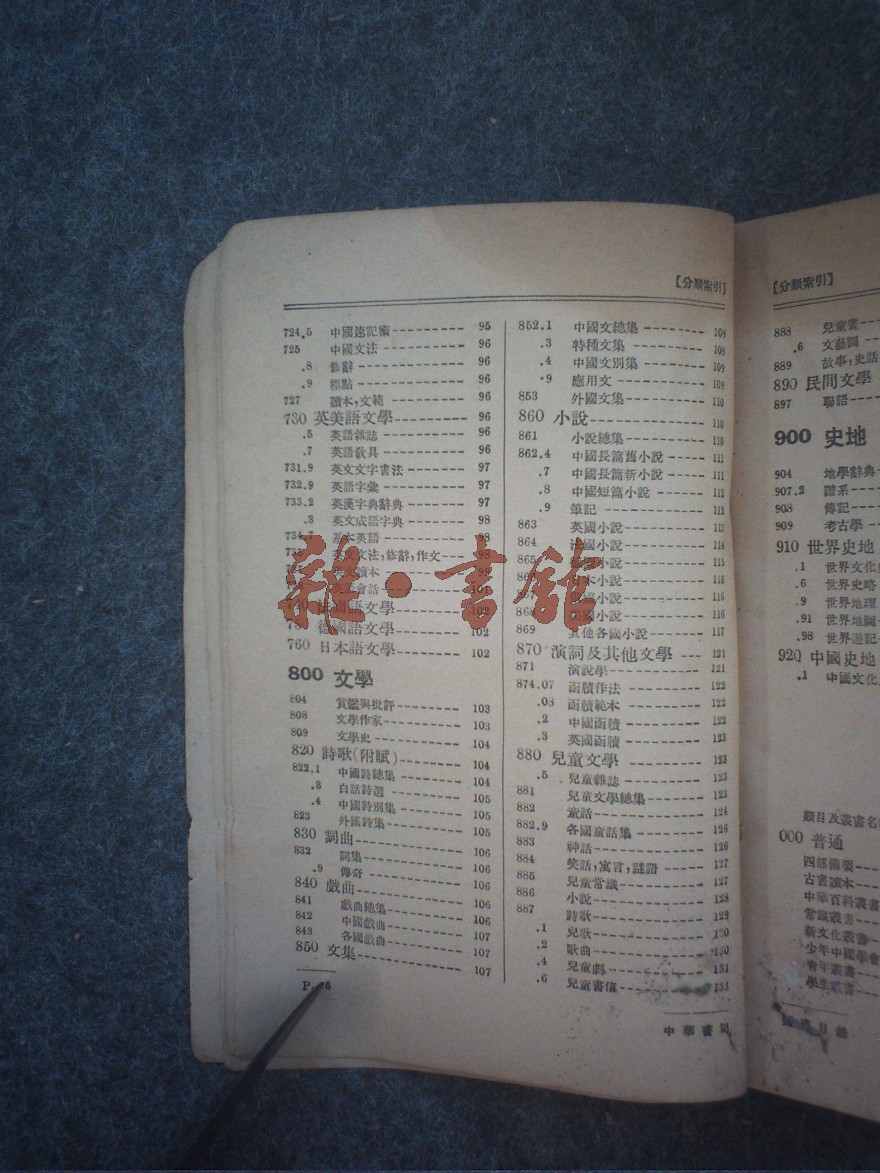 【分類索引】
724.5 中國速記術 95
725 中國文法 96
.8 修辭 96
.9 標點 96
727 讀本,文範 96
730 英美語文學 96
.5 英語雜誌 96
.7 英語教具 96
731.9 英文文字書法 97
732.9 英語字彙 97
733.2 英漢字典辭典 97
.3 英文成語字典 98
734.7 基本英語 98
英文文法,修辭,作文 98
英文讀本 99
英語會話 101
740 法國語文學 102
德國語文學 102
760 日本語文學 102
800 文學
804 賞鑑與批評 103
808 文學作家 103
809 文學史 104
820 詩歌(附賦) 104
822.1 中國詩總集 104
.3 白話詩選 105
.4 中國詩別集 105
823 外國詩集 105
830 詞曲 106
832 詞集 106
.9 傳奇 106
840 戲曲 106
841 戲曲總集 106
842 中國戲曲 106
843 各國戲曲 107
850 文集 107
852.1 中國文總集 108
.3 特種文集 108
.4 中國文別集 109
.9 應用文 109
853 外國文集 110
860 小說 110
861 小說總集 110
862.4 中國長篇舊小說 111
.7 中國長篇新小說 111
.8 中國短篇小說 112
.9 筆記 112
863 英國小說 113
864 法國小說 114
865 小說 115
日本小說 116
小說 116
868 小說 116
869 其他各國小說 117
870 演詞及其他文學 121
871 演說學 121
874.07 函牘作法 122
.08 函牘範本 122
.2 中國函牘 122
.3 英國函牘 123
880 兒童文學 123
.5 兒童雜誌 123
881 兒童文學總集 123
882 童話 124
882.9 各國童話集 126
883 神話 126
884 笑話,寓言,謎語 127
885 兒童常識 127
886 小說 128
887 詩歌 129
.1 兒歌 130
.2 歌曲 130
.4 兒童劇 131
.6 兒童書信 131
中華書局
【分類索引】
888 兒童畫
.6 文藝圖
889 故事,史話
890 民間文學
897 聯語
900 史地
904 地學辭典
907.2 譜系
908 傳記
909 考古學
910 世界史地
.1 世界文化史
.6 世界史略
.9 世界地理
.91 世界地圖
.98 世界遊記
920 中國史地
.1 中國文化
類目及叢書名
000 普通
四部備要
古書讀本
中華百科叢書
常識叢書
新文化叢書
少年中國學會
青年叢書
學生叢書
雜·書館